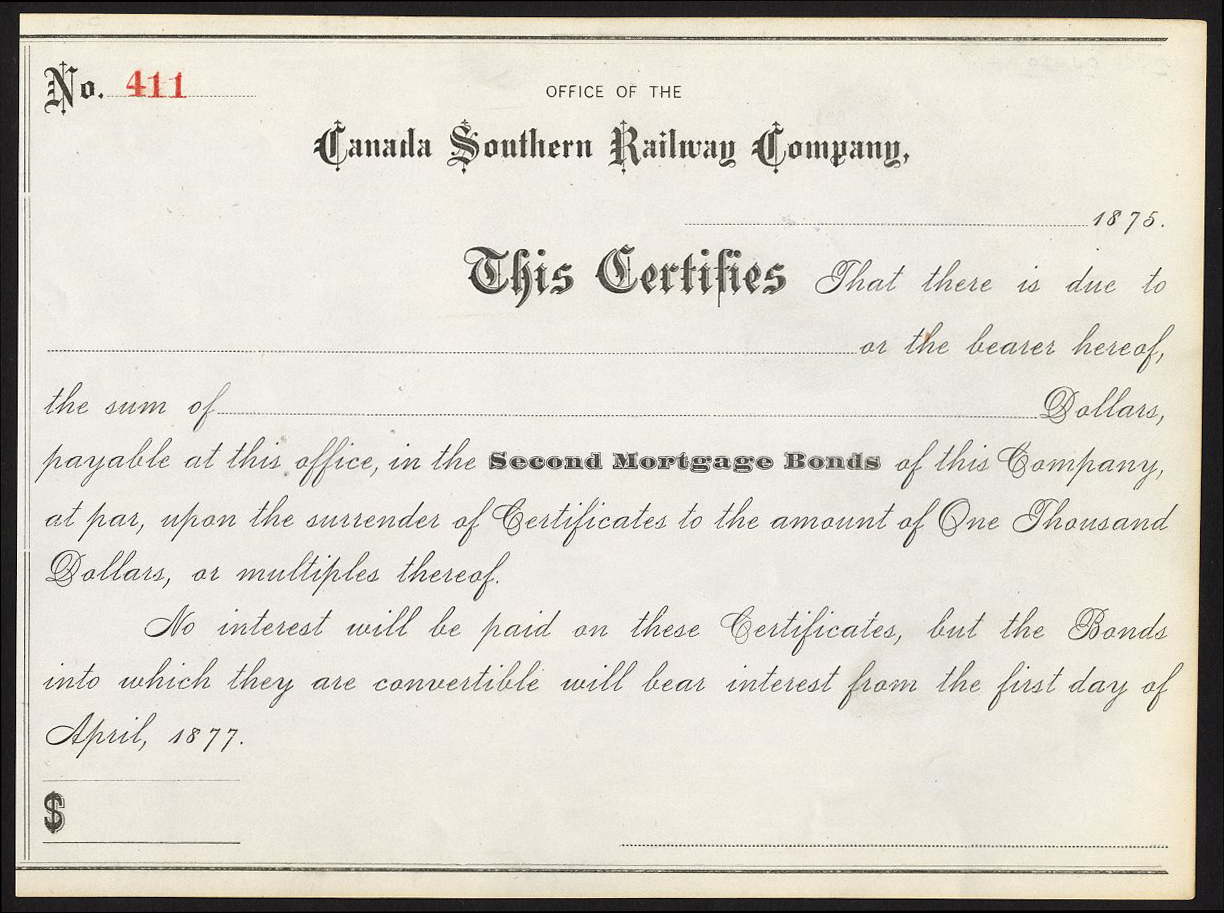 No. 411
OFFICE OF THE
Canada Southern Railway Company,
1875.
This Certifies That there is due to
or the bearer hereof,
the sum of Dollars,
payable at this office, in the Second Mortgage Bonds of this Company,
at par, upon the surrender of Certificates to the amount of One Thousand
Dollars, or multiples thereof.
No interest will be paid on these Certificates, but the Bonds
into which they are convertible will bear interest from the first day of
April, 1877.
$